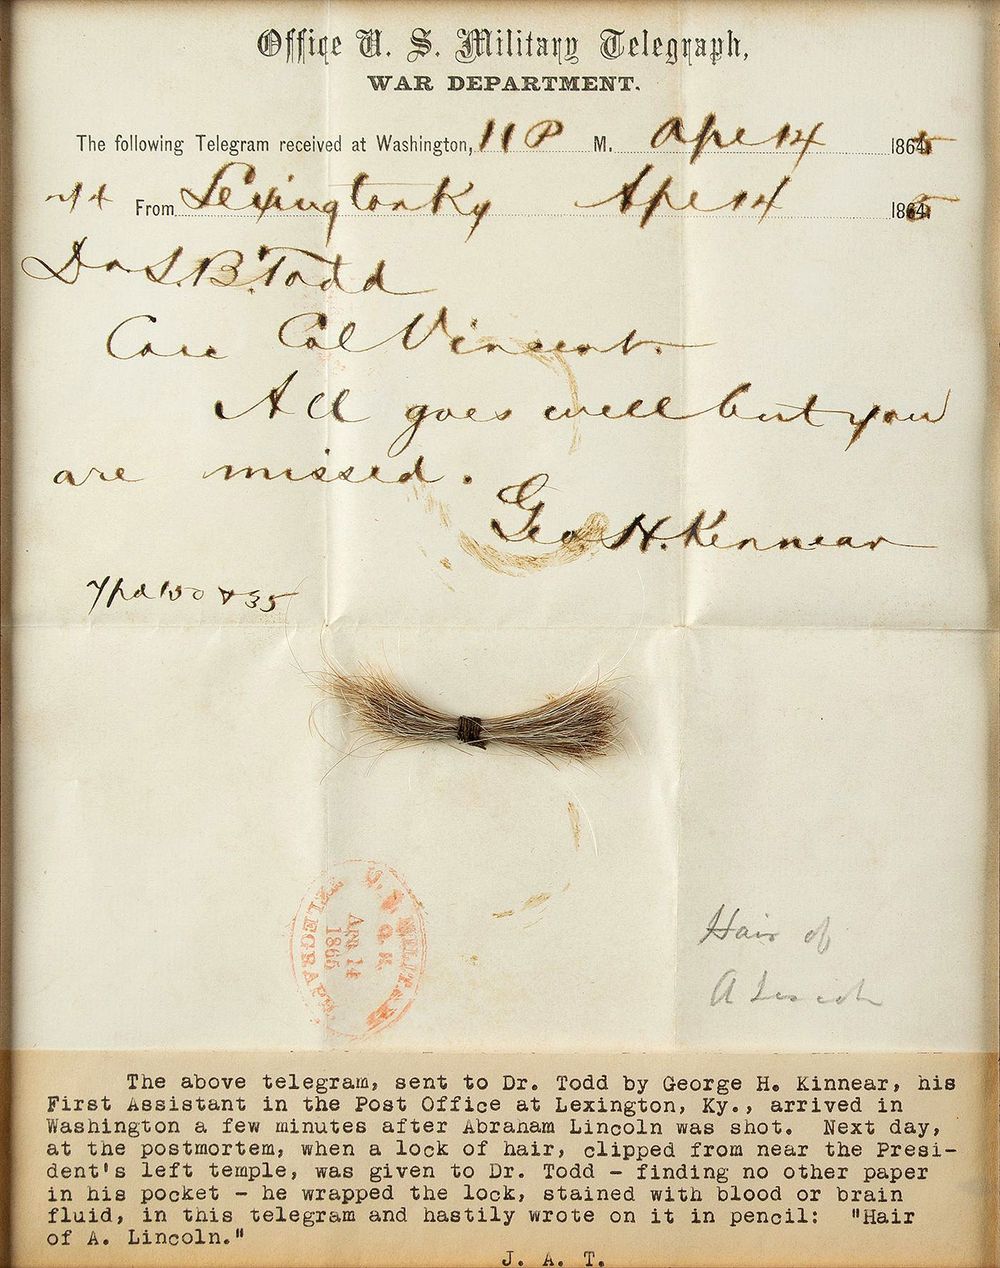 Office U. S. Military Telegraph,
WAR DEPARTMENT.
The following Telegram received at Washington, 11 P M. Apr 14 1865
From Lexington Ky Apr 14 1865
Dr L. B. Todd
Care Col Vincent.
All goes well but you
are missed.
Geo H. Kennear
35
U. S. MILITARY TELEGRAPH
Apr 14
1865
Hair of
A Lincoln
The above telegram, sent to Dr. Todd by George H. Kinnear, his
First Assistant in the Post Office at Lexington, Ky., arrived in
Washington a few minutes after Abraham Lincoln was shot. Next day,
at the postmortem, when a lock of hair, clipped from near the Presi-
dent's left temple, was given to Dr. Todd - finding no other paper
in his pocket - he wrapped the lock, stained with blood or brain
fluid, in this telegram and hastily wrote on it in pencil: "Hair
of A. Lincoln."
J. A. T.